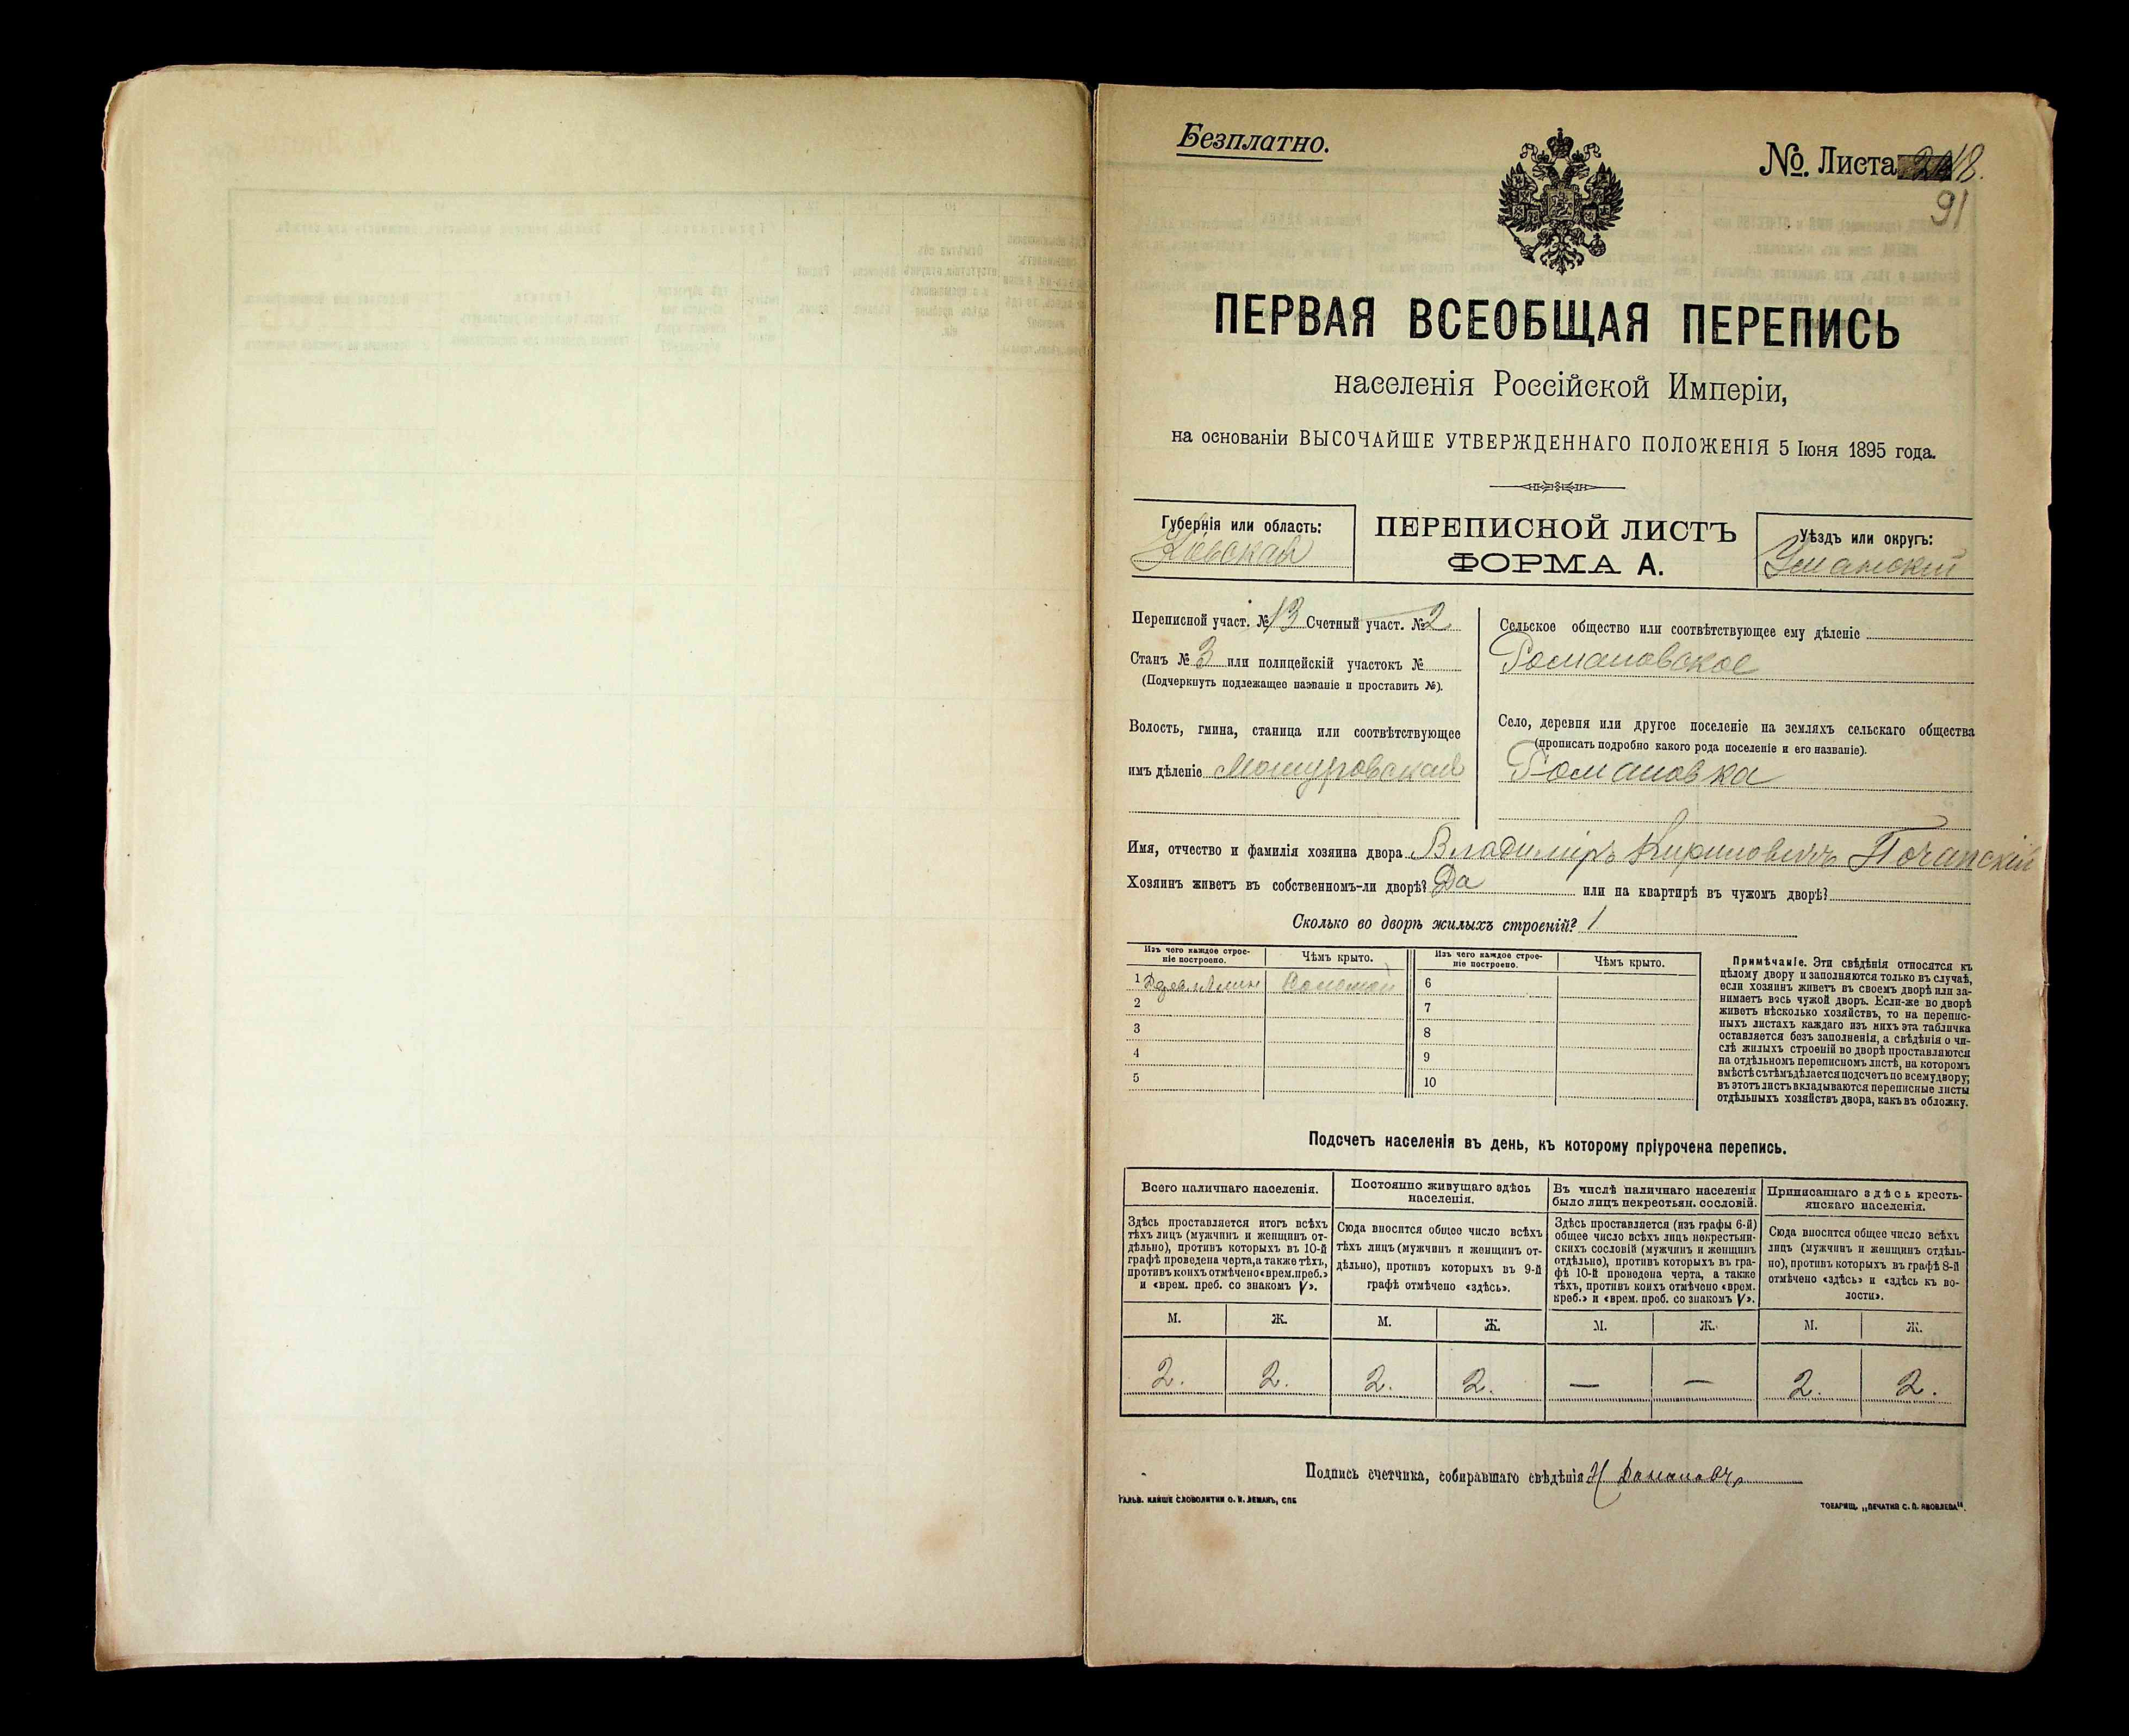 Безплатно.
№. Листа
91
ПЕРВАЯ ВСЕОБЩАЯ ПЕРЕПИСЬ
населенія Россійской Имперіи,
на основаніи ВЫСОЧАЙШЕ УТВЕРЖДЕННАГО ПОЛОЖЕНІЯ 5 Іюня 1895 года.
Губернія или область:
Кіевская
ПЕРЕПИСНОЙ ЛИСТЪ
ФОРМА А.
Уѣздъ или округъ:
Уманскій
Переписной участ. № 13 Счетный участ. № 2
Станъ № 3 или полицейскій участокъ №
(Подчеркнуть подлежащее названіе и проставить №).
Волость, гмина, станица или соотвѣтствующее
имъ дѣленіе Мошуровская
Сельское общество или соотвѣтствующее ему дѣленіе
Романовское
Село, деревня или другое поселеніе на земляхъ сельскаго общества
(прописать подробно какого рода поселеніе и его названіе).
Романовка
Имя, отчество и фамилія хозяина двора Владиміръ Почапскій
Хозяинъ живетъ въ собственномъ-ли дворѣ? Да или на квартирѣ въ чужомъ дворѣ?
Сколько во дворѣ жилыхъ строеній? 1
Изъ чего каждое строеніе построено.
Чѣмъ крыто.
Изъ чего каждое строеніе построено.
Чѣмъ крыто.
1 Соломой 6
2 7
3 8
4 9
5 10
Примѣчаніе. Эти свѣдѣнія относятся къ
цѣлому двору и заполняются только въ случаѣ,
если хозяинъ живетъ въ своемъ дворѣ или за-
нимаетъ весь чужой дворъ. Если-же во дворѣ
живетъ нѣсколько хозяйствъ, то на перепис-
ныхъ листахъ каждаго изъ нихъ эта табличка
оставляется безъ заполненія, а свѣдѣнія о чи-
слѣ жилыхъ строеній во дворѣ проставляются
на отдѣльномъ переписномъ листѣ, на которомъ
вмѣстѣ съ тѣмъ дѣлается подсчетъ по всему двору;
въ этотъ листъ вкладываются переписные листы
отдѣльныхъ хозяйствъ двора, какъ въ обложку.
Подсчетъ населенія въ день, къ которому пріурочена перепись.
Всего наличнаго населенія.
Здѣсь проставляется итогъ всѣхъ
тѣхъ лицъ (мужчинъ и женщинъ от-
дѣльно), противъ которыхъ въ 10-й
графѣ проведена черта, а также тѣхъ,
противъ коихъ отмѣчено «врем. преб.»
и «врем. преб. со знакомъ V».
Постоянно живущаго здѣсь
населенія.
Сюда вносится общее число всѣхъ
тѣхъ лицъ (мужчинъ и женщинъ от-
дѣльно), противъ которыхъ въ 9-й
графѣ отмѣчено «здѣсь».
Въ числѣ наличнаго населенія
было лицъ некрестьян. сословій.
Здѣсь проставляется (изъ графы 6-й)
общее число всѣхъ лицъ некрестьян-
скихъ сословій (мужчинъ и женщинъ
отдѣльно), противъ которыхъ въ гра-
фѣ 10-й проведена черта, а также
тѣхъ, противъ коихъ отмѣчено «врем.
креб.» и «врем. преб. со знакомъ V».
Приписаннаго здѣсь кресть-
янскаго населенія.
Сюда вносится общее число всѣхъ
лицъ (мужчинъ и женщинъ отдѣль-
но), противъ которыхъ въ графѣ 8-й
отмѣчено «здѣсь» и «здѣсь къ во-
лости».
М. Ж. М. Ж. М. Ж. М. Ж.
2. 2. 2. 2. — — 2. 2.
Подпись счетчика, собиравшаго свѣдѣнія
ГАЛЬВ. КЛИШЕ СЛОВОЛИТНИ О. И. ЛЕМАНЪ, СПБ
ТОВАРИЩ. „ПЕЧАТНЯ С. П. ЯКОВЛЕВА".